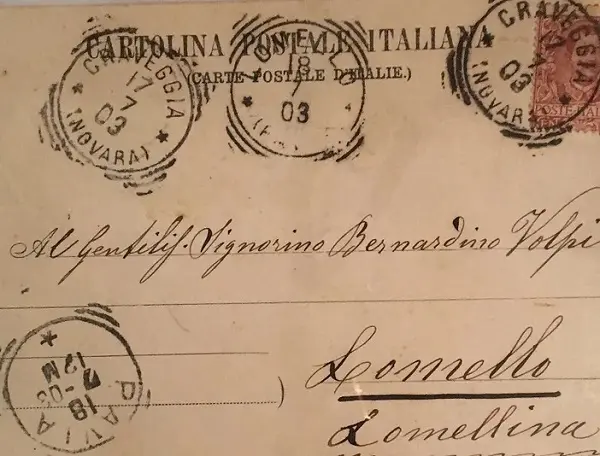 CARTOLINA POSTALE ITALIANA
(CARTE POSTALE D'ITALIE.)
CRAVEGGIA
17
7
03
* (NOVARA) *
18
7
03
CRAVEGGIA
17
7
03
(NOVARA) *
POSTE ITAL
Al Gentilis. Signorino Bernardino Volpi
Lomello
Lomellina
PAVIA
18
7
-03
12M
*
)